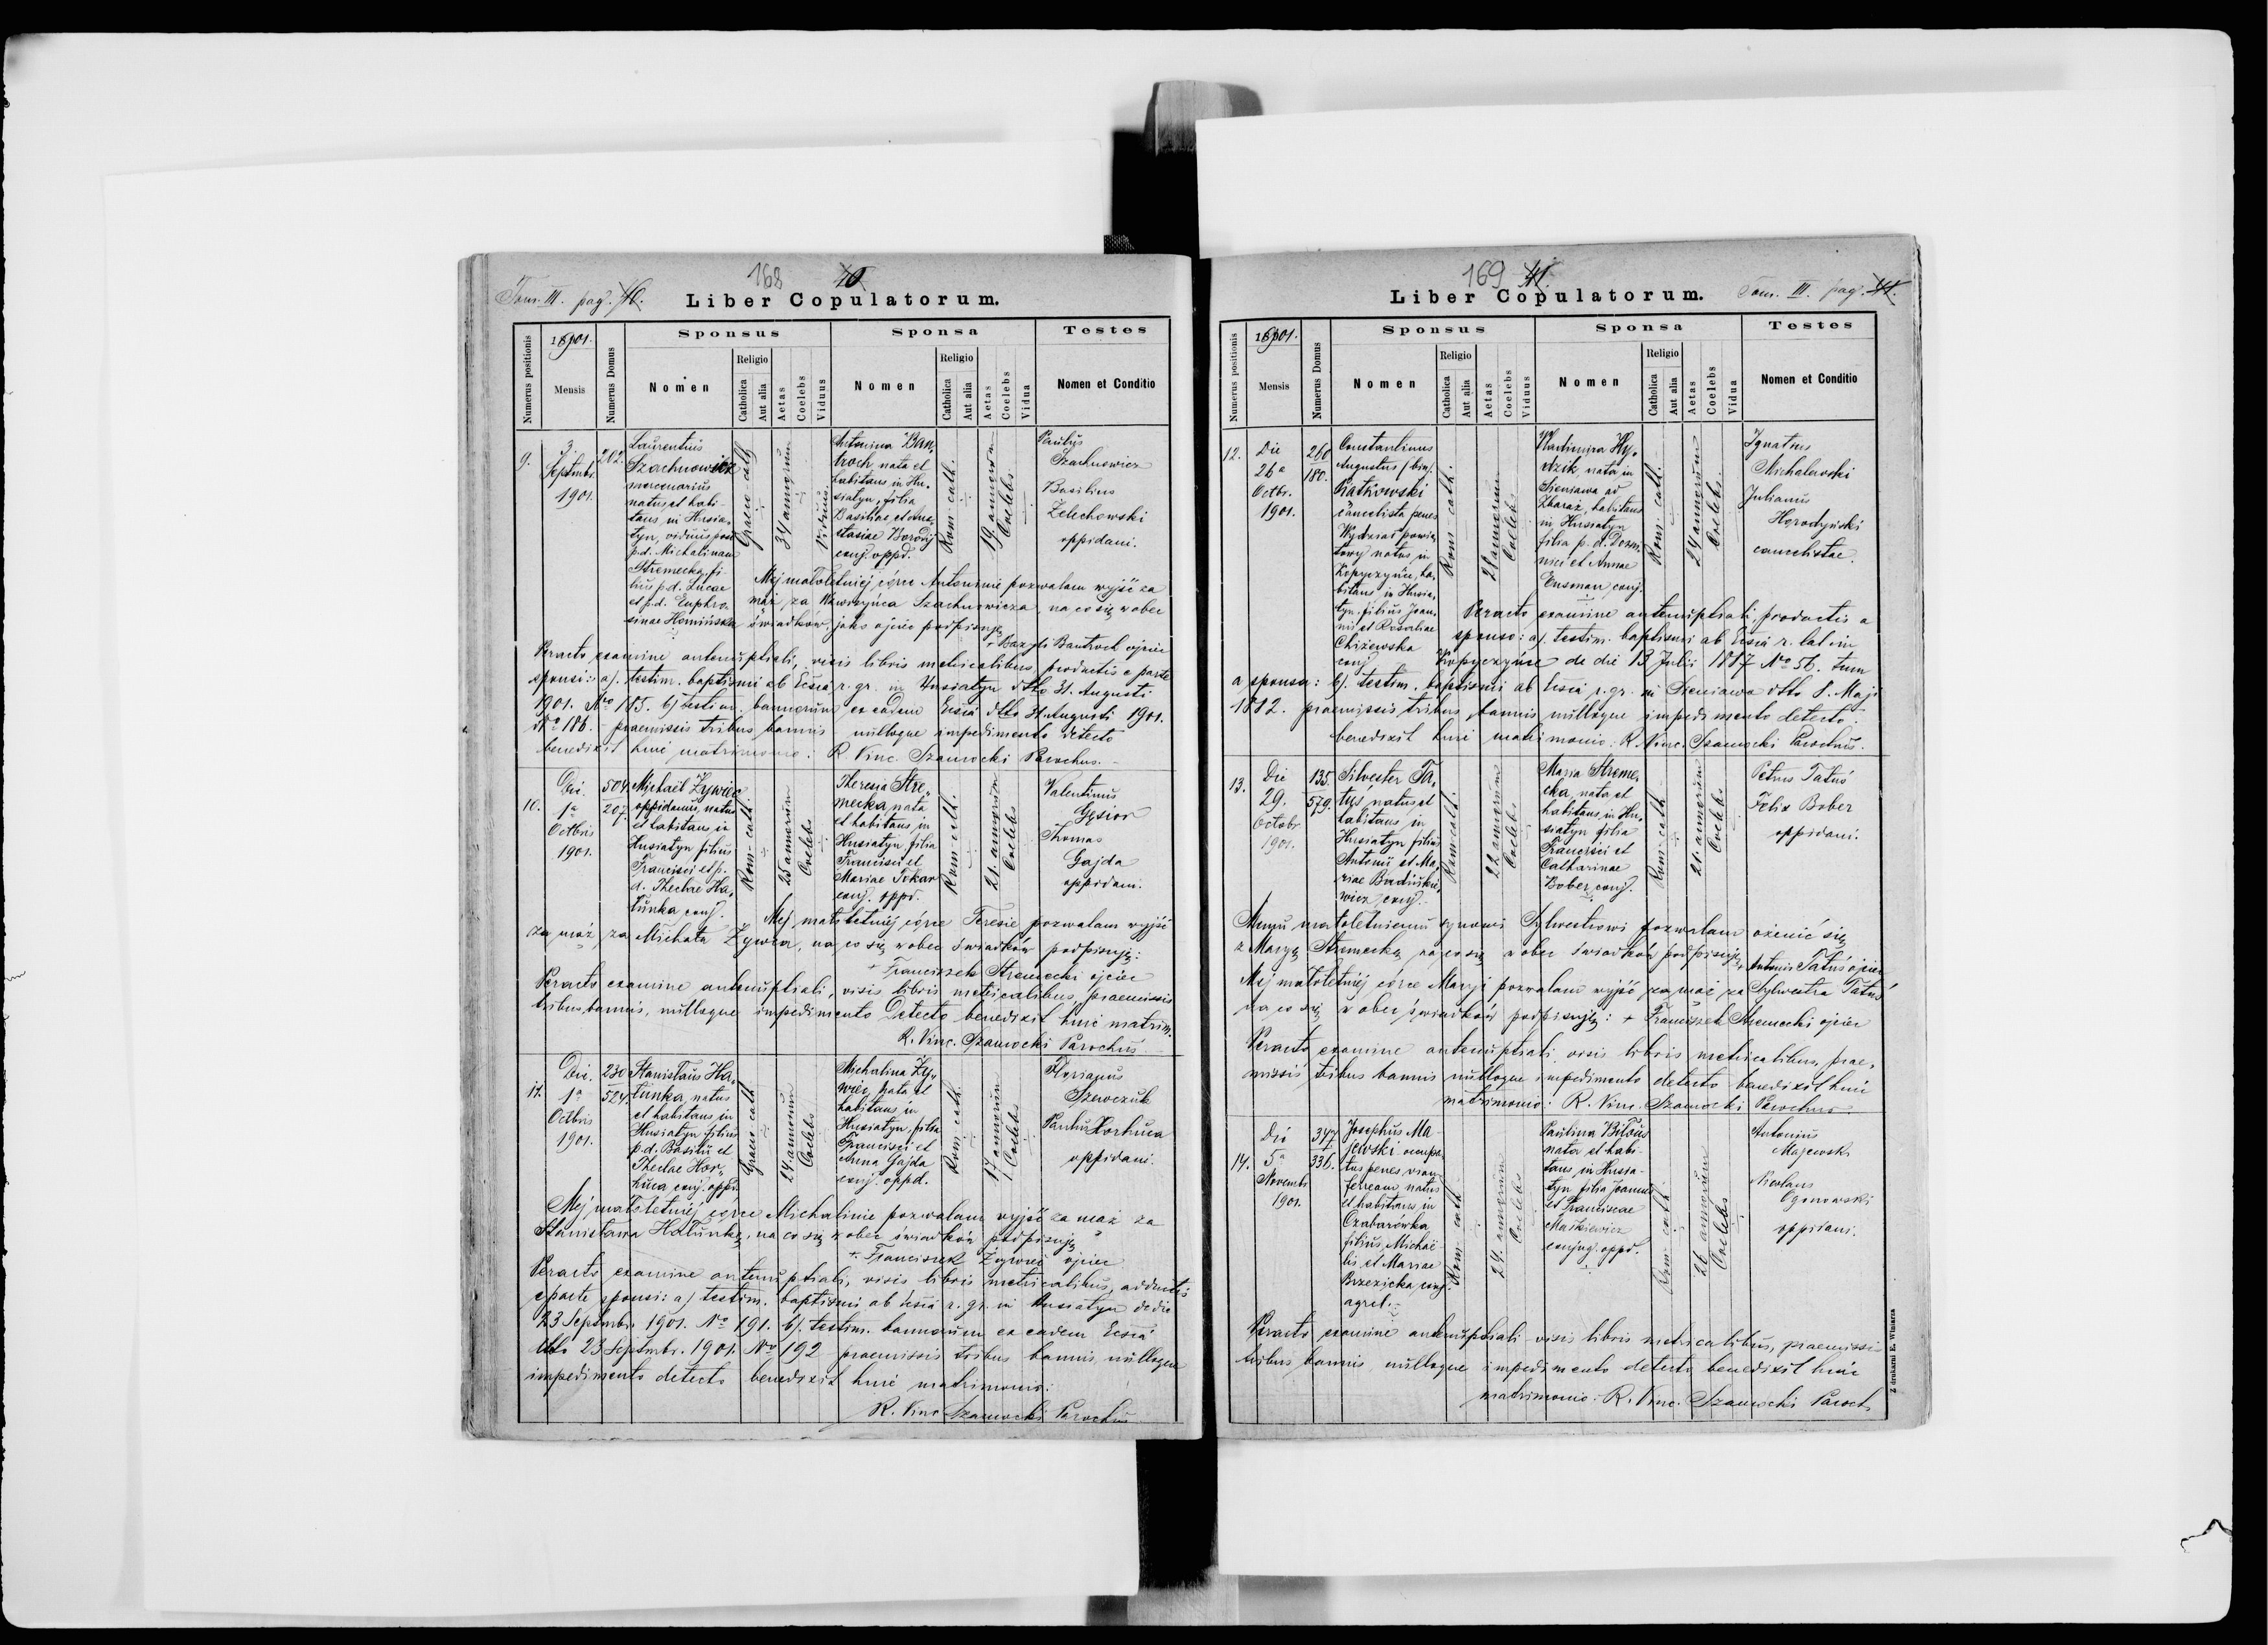 168 40
Tom. III. pag. 40.
Liber Copulatorum.
Numerus positionis
18901.
Mensis
Numerus Domus
Sponsus
Nomen
Religio
Catholica
Aut alia
Aetas
Coelebs
Viduus
Sponsa
Nomen
Religio
Catholica
Aut alia
Aetas
Coelebs
Vidua
Testes
Nomen et Conditio
9.
3.
Septmbr.
1901.
202.
Laurentius
Szachnowicz
mercenarius
natus et habi-
tans in Husia,
tyn, viduus post
p.d. Michalinam
Stremecka, fi-
lius p.d. Lucae
et p.d. Euphro-
sinae Hemińska
Graeco-cath
34 annorum
Viduus.
Antonina Ban,
troch nata et
habitans in Hu,
siatyn, filia
Basilii et Ana,
stasiae Borodij
conj. oppd.
Rom-cath.
19 annorum
Coelebs.
Paulus
Szachnowicz
Basilius
Zelechowski
oppidani.
Mej małoletniej córce Antoninie pozwalam wyjść za
mąż za Wawrzyńca Szachnowicza, na co się wobec
świadków, jako ojciec podpisuję
+ Bazyli Bantroch ojciec
Peracto examine antenuptiali, visis libris metricalibus, productis e parte
sponsi: a). testim. baptismi ab Ecsia r. gr. in Husiatyn ddto 31. Augusti
1901. No 185. b) testim. bannorum ex eadem Ecsia ddto 31. Augusti 1901.
No 186. - praemissis tribus bannis nulloque impedimento detecto
benedixit huic matrimonio: R. Vinc. Szamocki Parochus.
10.
Die.
1a
Octbris
1901.
504.
207.
Michael Zywiec
oppidanus, natus
et habitans in
Husiatyn filius
Francisci et p.
d. Theclae Ha,
łunka conj.
Rom-cath.
25 annorum
Coelebs
Theresia Stre,
mecka nata
et habitans in
Husiatyn filia
Francisci et
Mariae Tokar
conj. oppd.
Rom-cath.
21. annorum
Coelebs
Valentinus
Gęsior
Thomas
Gajda
oppidani.
Mej małoletniej córce Teresie pozwalam wyjść
za mąż za Michała Żywca, na co się wobec świadków podpisuję:
+ Franciszek Stremecki ojciec
Peracto examine antenuptiali, visis libris metricalibus, praemissis
tribus bannis, nulloque impedimento Detecto benedixit huic matrim.
R. Vinc. Szamocki Parochus
11.
Die.
1a
Octbris
1901.
230
524.
Stanislaus Ha,
łunka, natus
et habitans in
Husiatyn filius
p.d. Basilii et
Theclae Hor,
huca conj. oppd.
Graeco-cath
24. annorum
Coelebs
Michalina Zy,
wiec nata et
habitans in
Husiatyn, filia
Francisci et
Anna Gajda
conj. oppd.
Rom-cath.
17 annorum
Coelebs
Florianus
Szewczuk
Paulus Horhuca
oppidani.
Mej małoletniej córce Michalinie pozwalam wyjść za mąż za
Stanisława Hałunkę, na co się wobec świadków podpisuję
+. Franciszek Żywiec ojciec
Peracto examine antenuptiali, visis libris metricalibus, adductis
e parte sponsi: a) testim. baptismi ab Ecsia r. gr. in Husiatyn de die
23 Septmbr. 1901. No 191. b). testim. bannorum ex eadem Ecsia
ddto 23 Septmbr. 1901. No 192 praemissis tribus bannis nulloque
impedimento detecto benedixit huic matrimonio:
R. Vinc Szamocki Parochus
169 41.
Liber Copulatorum.
Tom. III. pag. 41.
Numerus positionis
18901.
Mensis
Numerus Domus
Sponsus
Nomen
Religio
Catholica
Aut alia
Aetas
Coelebs
Viduus
Sponsa
Nomen
Religio
Catholica
Aut alia
Aetas
Coelebs
Vidua
Testes
Nomen et Conditio
12.
Die
26a
Octbr.
1901.
260
180.
Constantinus
Augustus (bin.)
Piatkowski
cancelista penes
Wydział powia,
towy natus in
Kopyczyńce, ha,
bitans in Husia,
tyn. filius Joan,
nis et Rosaliae
Chiżewska
conj
Rom-cath.
annorum
Coelebs
Wladimira Hy,
dzik, nata in
Sieniawa ad
Zbaraż, habitans
in Husiatyn
filia p.d. Domi,
nici et Annae
Eusman conj.
Rom-cath.
24 annorum
Coelebs
Ignatius
Michalewski
Julianus
Horodyński
cancelistae.
Peracto examine antenuptiali, productis a
sponso: a). testim. baptismi ab Ecsia r. lat. in
Kopyczyńce de die 13 Julii 1887 No 56. tum
a sponsa: b). testim. baptismi ab Ecsia r. gr. in Sieniawa ddto 8. Maji
1882. praemissis tribus bannis nulloque impedimento detecto.
benedixit huic matrimonio: R. Vinc. Szamocki Parochus.
13.
Die
29.
Octobr
1901.
135.
579.
Silvester Ta,
tuś natus et
habitans in
Husiatyn filius
Antonii et Ma,
riae Budiuskie,
wicz conj.
Rom-cath.
22 annorum
Coelebs
Maria Streme,
cka, nata et
habitans in Hu,
siatyn filia
Francisci et
Catharinae
Bober, conj.
Rom-cath
21. annorum
Coelebs
Petrus Tatuś
Felix Bober
oppidani.
Memu małoletniemu synowi Sylwestrowi pozwalam ożenić się
z Maryą Stremecką na co się wobec świadków podpisuję + Antonii Tatuś ojciec
Mej małoletniej córce Maryi pozwalam wyjść za mąż za Sylwestra Tatuś
na co się wobec świadków podpisuję: + Franciszek Stremecki ojciec
Peracto examine antenuptiali visis libris metricalibus, prae,
missis tribus bannis nulloque impedimento detecto benedixit huic
matrimonio: R. Vinc. Szamocki Parochus
14.
Die
5a
Novembr
1901.
347
336.
Josephus Ma
jewski occupa
tus penes viam
ferream natus
et habitans in
Czabarówka
filius Michae
lis et Mariae
Brzezicka conj.
agrel.
Rom-cath.
24. annorum
Coelebs
Paulina Biłous
nata et habi-
tans in Husia-
tyn filia Joannis
et Franciscae
Maśkiewicz
conjug. oppd.
Rom-cath
26 annorum
Coelebs
Antonius
Majewski
Nicolaus
Ogonowski
oppidani.
Peracto examine antenuptiali visis libris metricalibus, praemissis
tribus bannis nulloque impedimento detecto benedixit huic
matrimonio: R. Vinc. Szamocki Paroch
Z drukarni E. Winiarza